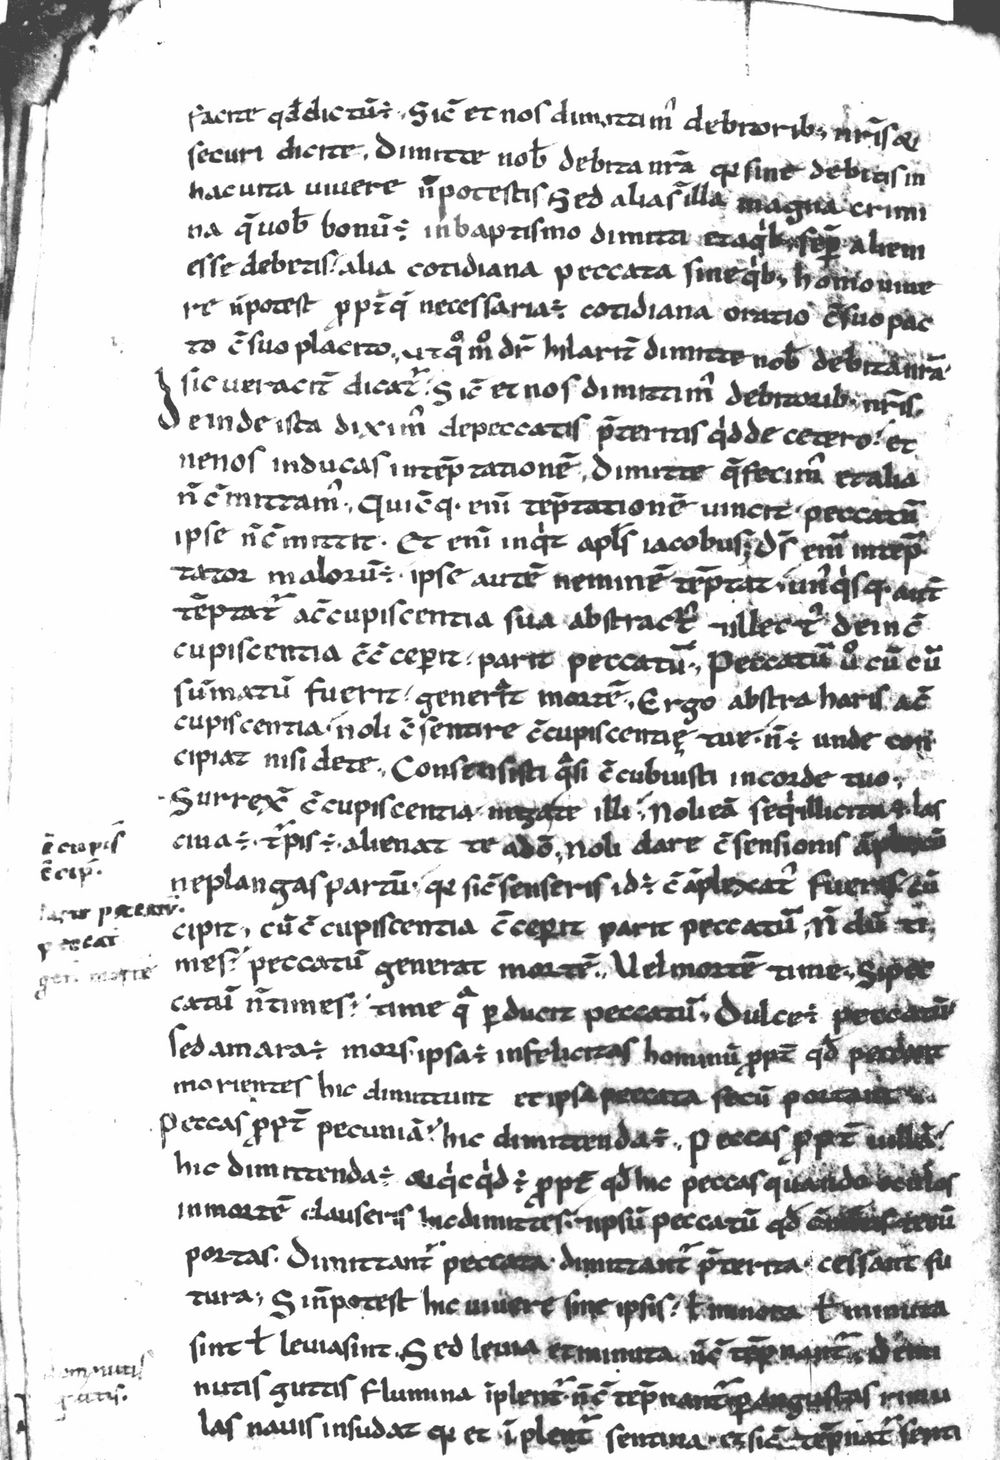 facite qđ dictū÷. Sic̄ et nos dimittim᷒ debitorib; nr̄is &
securi dicite. Dimitte nob̄ debita nrā q̄ sine debitis in
hac uita uiuere n̄ potestis Sed alia s̄ illa magna crimi
na q̄ uob̄ bonū÷ in baptismo dimitti et a q̇b; sēp alieni
esse debetis. alia cotidiana peccata sine q̇b; homo uiue
re n̄ potest ppt̄ q̄ necessaria÷ cotidiana oratio c̄ suo pac
to c̄ suo placito, ut qͦmͦ dr̄ hilarit̄ dimitte nob̄ debita nrā
sic ueracit̄ dicat᷒. Sic̄ et nos dimittim᷒ debitorib; nr̄is.
Deinde ista dixim᷒ de peccatis p̄teritis q̇d de cetero? et
ne nos inducas in tēptationē. Dimitte q̄ fecim᷒ et alia
n̄ c̄mittam᷒. Quic̄q. eni tēptationē uincit peccatū
ipse n̄ c̄mittit. Et eni inq̇t apls̄ iacobus; Ds̄ eni intēp
tator malorū÷. ipse autē neminē tēptat. un᷒q̇sq. aut̄
tēptat᷒ a c̄cupiscentia sua abstract᷒ illect᷒ dein c̄
cupiscentia c̄ c̄ceperit. parit peccatū. Peccatū uͦ cū cū
sūmatū fuerit generat mortē. Ergo abstraharis a c̄
cupiscentia. noli c̄sentire c̄cupiscentię tue. n̄÷ unde con
cipiat nisi de te. Consensisti q̄si c̄cubuisti in corde tuo.
Surrex̄ c̄cupiscentia negate illi. Noli eā seq̇ illicita÷ las
ciua÷. t᷒pis÷. alienat te a dō. Noli dare c̄sensionis āplexū
ne plangas partū. q̄ si c̄senseris id÷ c̄ āplexat᷒ fueris cū
cipit, cū c̄cupiscentia c̄ceperit parit peccatū, N̄dū ti
mes? peccatū generat mortē. Vel mortē time. Si pec
catū n̄ times. time q̄ pducit peccatū. Dulce÷ peccatū
sed amara÷ mors. ipsa÷ infelicitas hominū ppt̄ qđ peccant
morientes hic dimittunt et ipsa peccata secū portant
Peccas ppt̄ pecuniā? hic dimittenda÷. Peccas ppt̄ uillā?
hic dimittenda÷ & q̇cq̇d÷ ppt̄ qđ hic peccas quando oculos
in mortē clauseris hic dimittes. ipsū peccatū qđ secū
portas. Dimittant᷒ peccata dimittant᷒ p̄terita. cessant fu
tura; Si n̄ potest hic uiuere sine ipsis. ł minora ł minuta
sint ł leuia sint. Sed leuia et minuta n̄ c̄tēpnant᷒. De mi
nutis guttis flumina īplent᷒. n̄ c̄tēpnant᷒ p angustas rimu
las nauis insudat q̄ et īplent᷒ sentina. et si c̄tēpnat᷒ senti
c̄cupis
c̄cip.
parit
peccat
gen. morte
minutis
guttis.